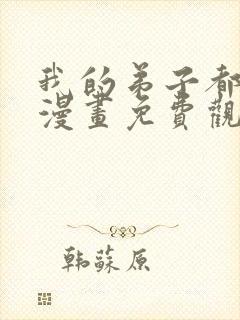 我的弟子都
漫畫免費觀
韩蘇原